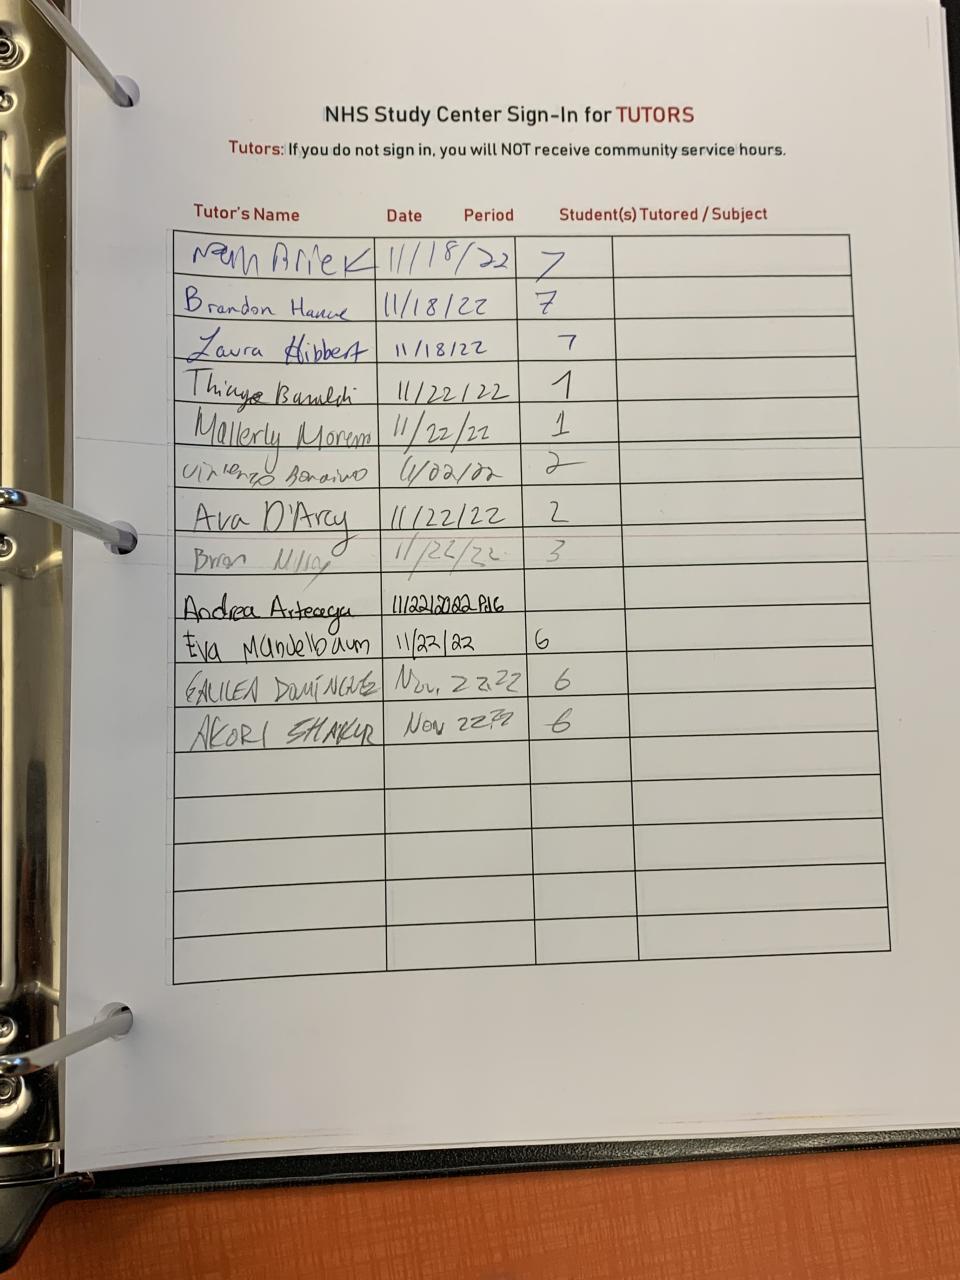 NHS Study Center Sign-In for TUTORS
Tutors: If you do not sign in, you will NOT receive community service hours.
Tutor's Name Date Period Student(s) Tutored / Subject
11/18/22 7
Brandon 11/18/22 7
Laura Hibbert 11/18/22 7
11/22/22 1
Mallerly 11/22/22 1
2
Ava D'Arcy 11/22/22 2
Brian 11/22/22 3
Andrea Arteaga 11/22/2022 Pd6
Eva Mandelbaum 11/22/22 6
GALILEA DOMINGUEZ Nov. 22, 22 6
AKORI SHAKUR Nov 22 22 6